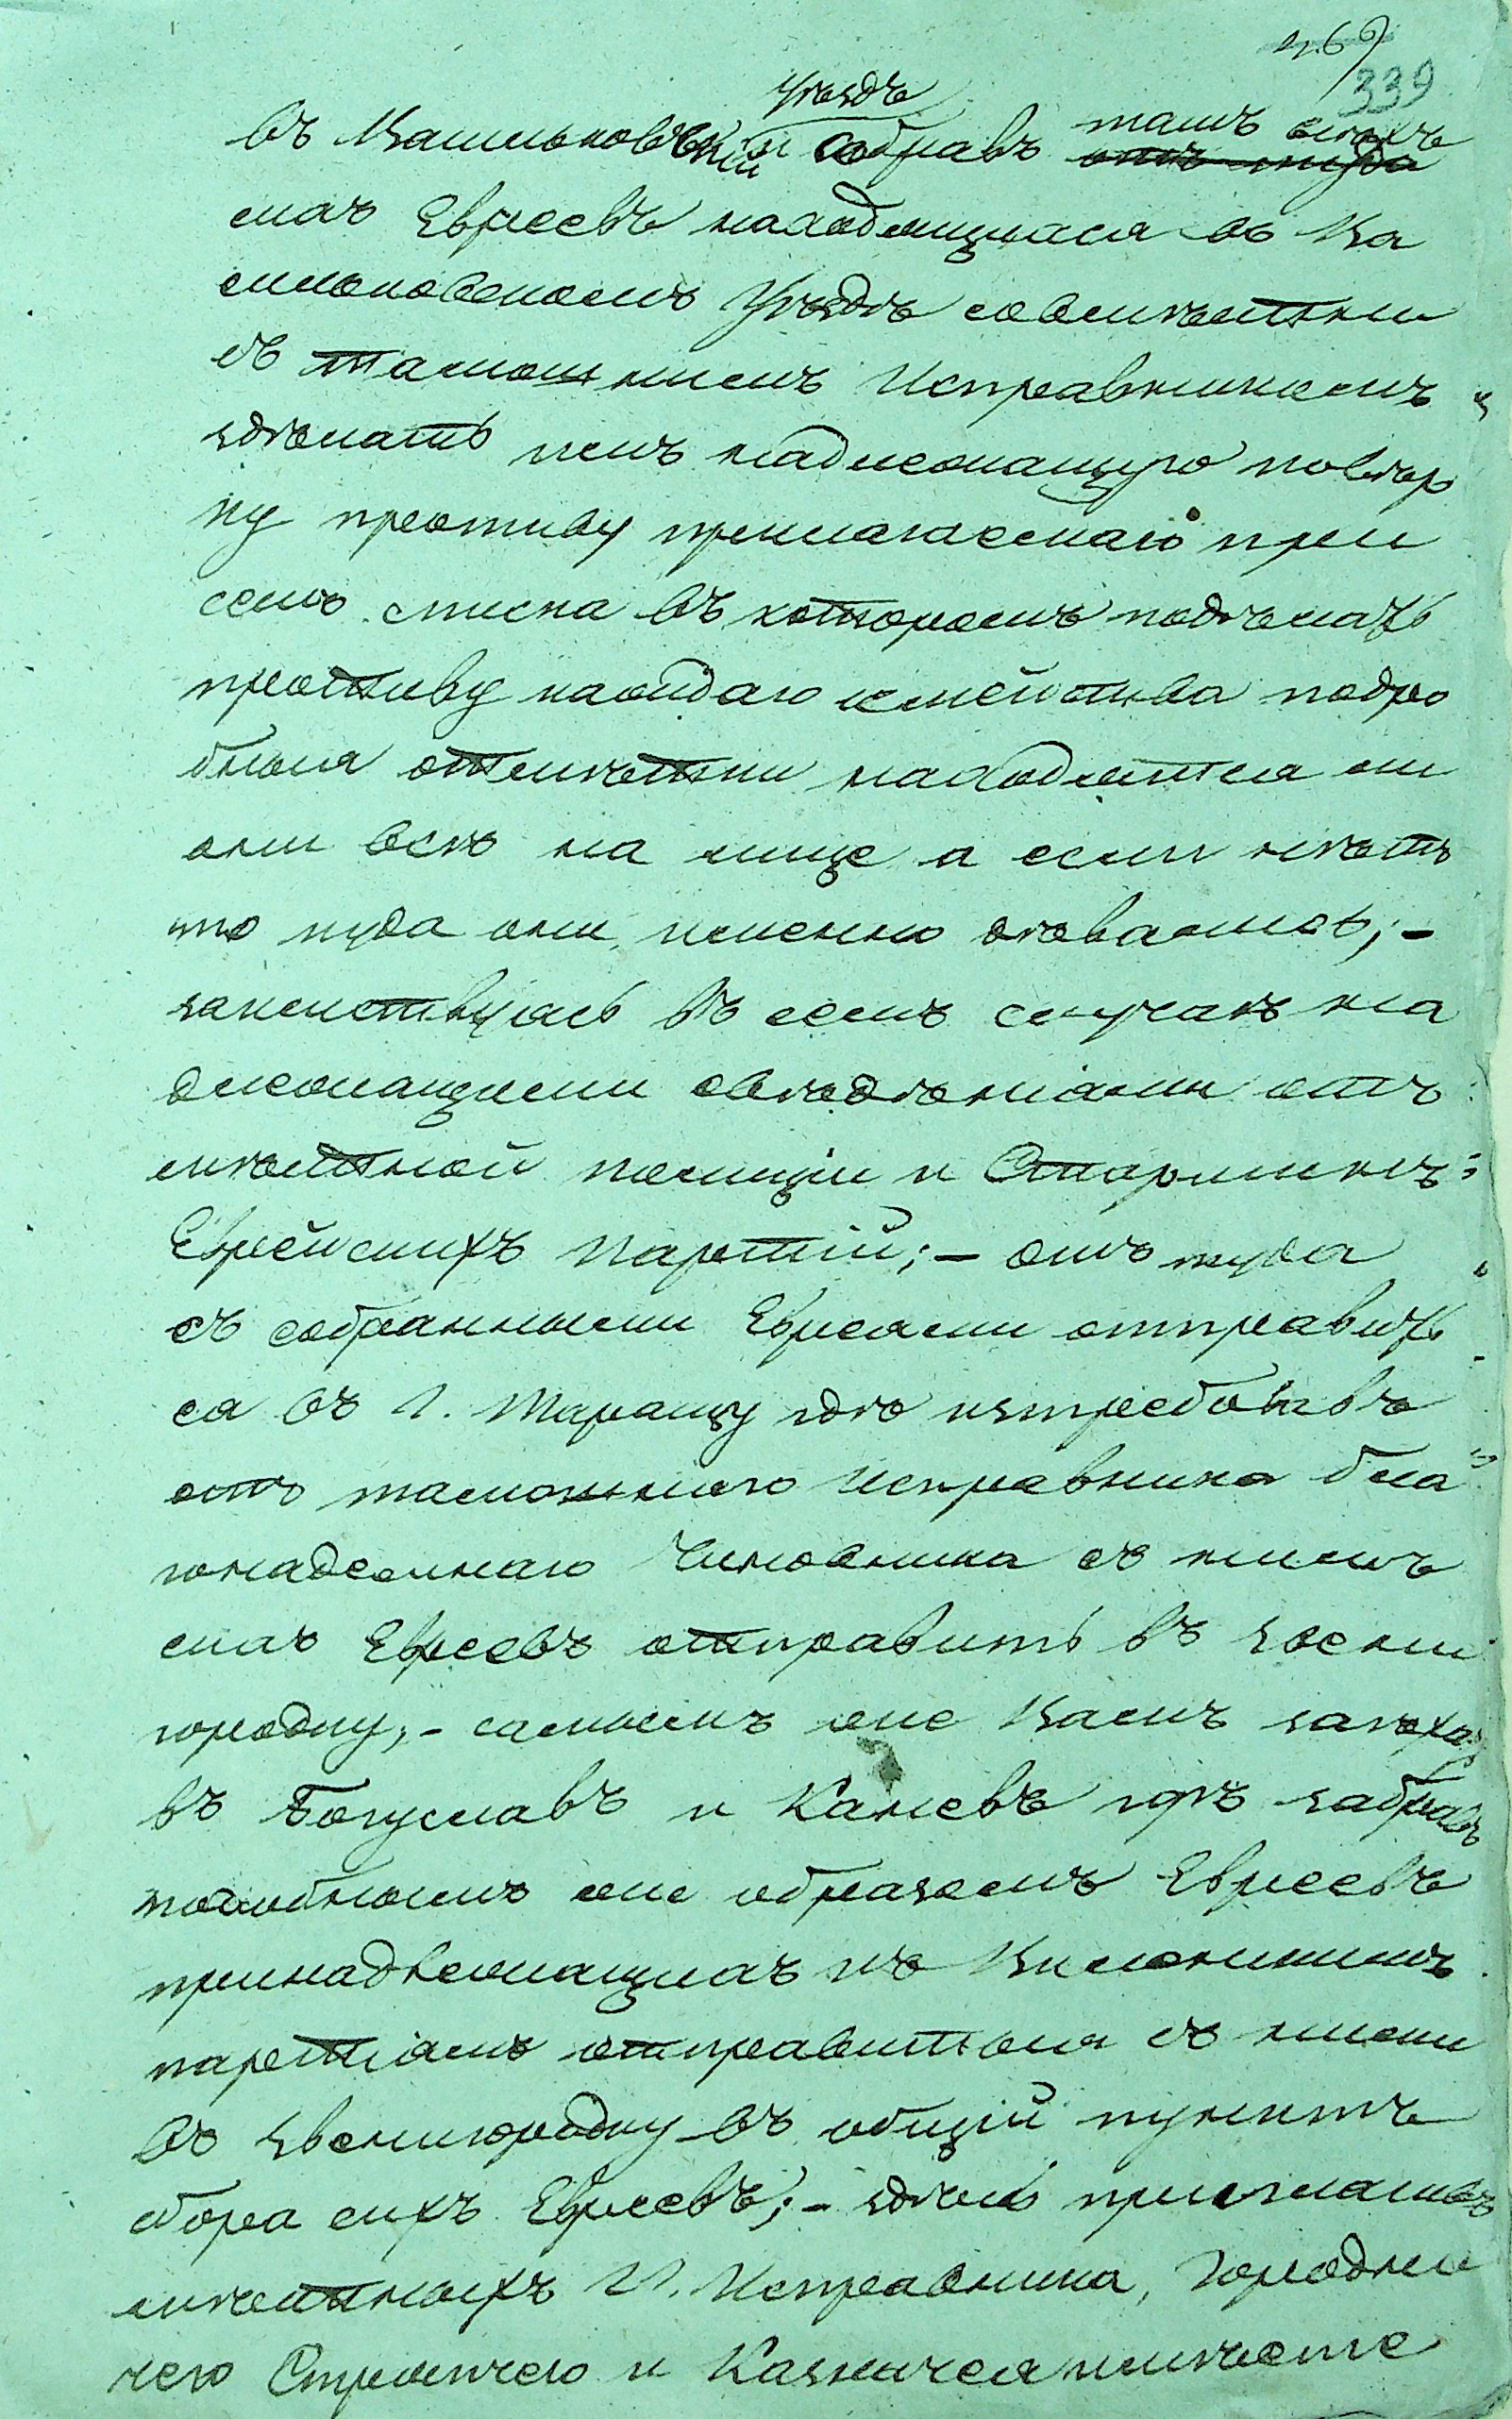 469
339
уѣздъ
въ Васильковскій и собравъ тамъ всѣхъ
отъ туда
тѣхъ Евреевъ находящихся въ Ва
сильковскомъ Уѣздѣ совмѣстно
съ тамошнимъ Исправникомъ
здѣлать имъ надлежащую повѣр
ку противу прилагаемаго при
семъ списка въ которомъ подѣлать
противу каждаго семейства подро
бныя отмѣтки находятся ли
они всѣ на лице а если нѣтъ
то куда они именно дѣвались;-
заимствуясь въ семъ случаѣ на
длежащими свѣдѣніями отъ
мѣстной полиціи и Старшинъ
Еврейскихъ партій;- отъ туда
съ собранными Евреями отправить
ся въ Г. Таращу гдѣ истребовавъ
отъ тамошняго Исправника бла
гонадежнаго Чиновника съ нимъ
тѣхъ Евреевъ отправить въ Звени
городку,- самимъ же Вамъ заѣхать
въ Богуславъ и Каневъ гдѣ забравъ
подобнымъ же образомъ Евреевъ
принадлежащихъ къ
партіямъ отправиться съ ними
въ Звенигородку въ общій пунктъ
сбора сихъ Евреевъ;- здѣсь пригласивъ
мѣстныхъ Г. Исправника, Городни
чего Стряпчего и Казначея вмѣстѣ